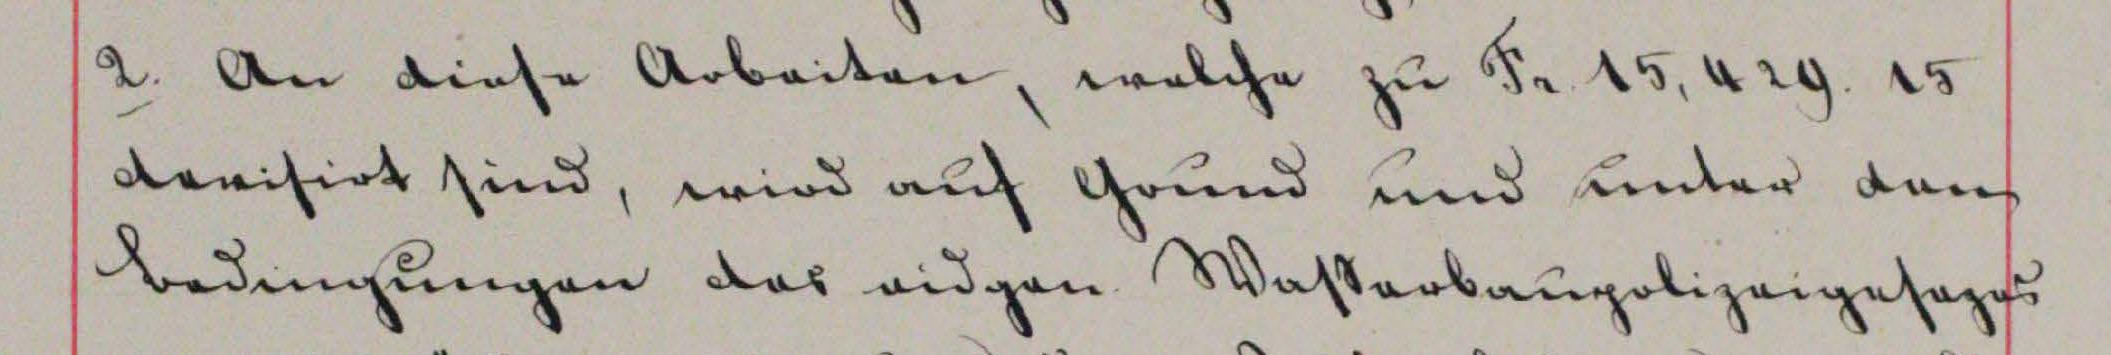 2. An diese Arbeiten, welche zu Fr. 15,429. 15
devisirt sind, wird auf Grund und unter den
Bedingungen des eidgen. Wasserbaupolizeigesezes